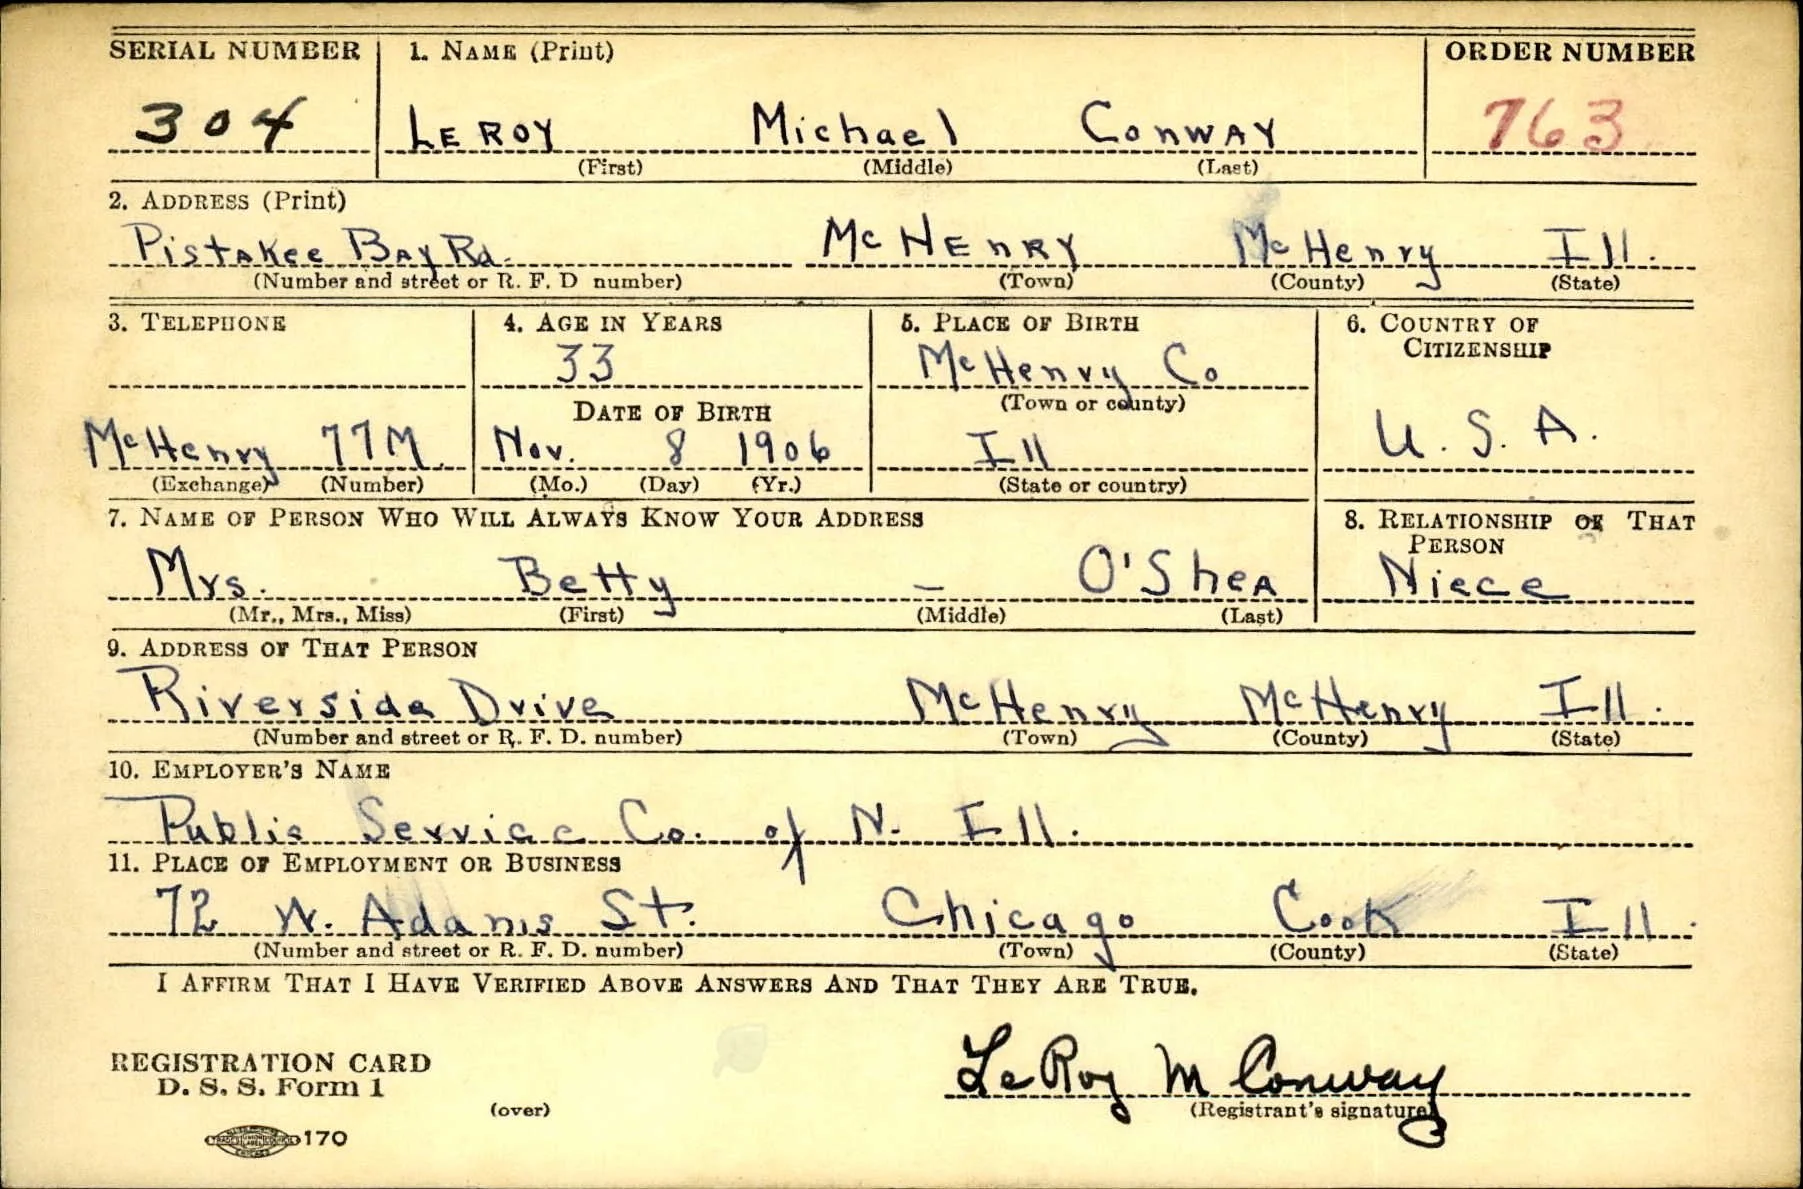 SERIAL NUMBER 1. NAME (Print) ORDER NUMBER
304 LEROY Michael CONWAY 763
(First) (Middle) (Last)
2. ADDRESS (Print)
Pistakee Bay Rd. McHENRY McHenry Ill.
(Number and street or R. F. D number) (Town) (County) (State)
3. TELEPHONE 4. AGE IN YEARS 5. PLACE OF BIRTH 6. COUNTRY OF
33 McHenry Co CITIZENSHIP
DATE OF BIRTH (Town or county)
McHenry 77M Nov. 8 1906 Ill U. S. A.
(Exchange) (Number) (Mo.) (Day) (Yr.) (State or country)
7. NAME OF PERSON WHO WILL ALWAYS KNOW YOUR ADDRESS 8. RELATIONSHIP OF THAT
PERSON
Mrs. Betty – O'Shea Niece
(Mr., Mrs., Miss) (First) (Middle) (Last)
9. ADDRESS OF THAT PERSON
Riverside Drive McHenry McHenry Ill.
(Number and street or R. F. D. number) (Town) (County) (State)
10. EMPLOYER'S NAME
Public Service Co. of N. Ill.
11. PLACE OF EMPLOYMENT OR BUSINESS
72 W. Adams St. Chicago Cook Ill.
(Number and street or R. F. D. number) (Town) (County) (State)
I AFFIRM THAT I HAVE VERIFIED ABOVE ANSWERS AND THAT THEY ARE TRUE.
REGISTRATION CARD
D. S. S. Form 1
LeRoy M Conway
(over) (Registrant's signature)
170